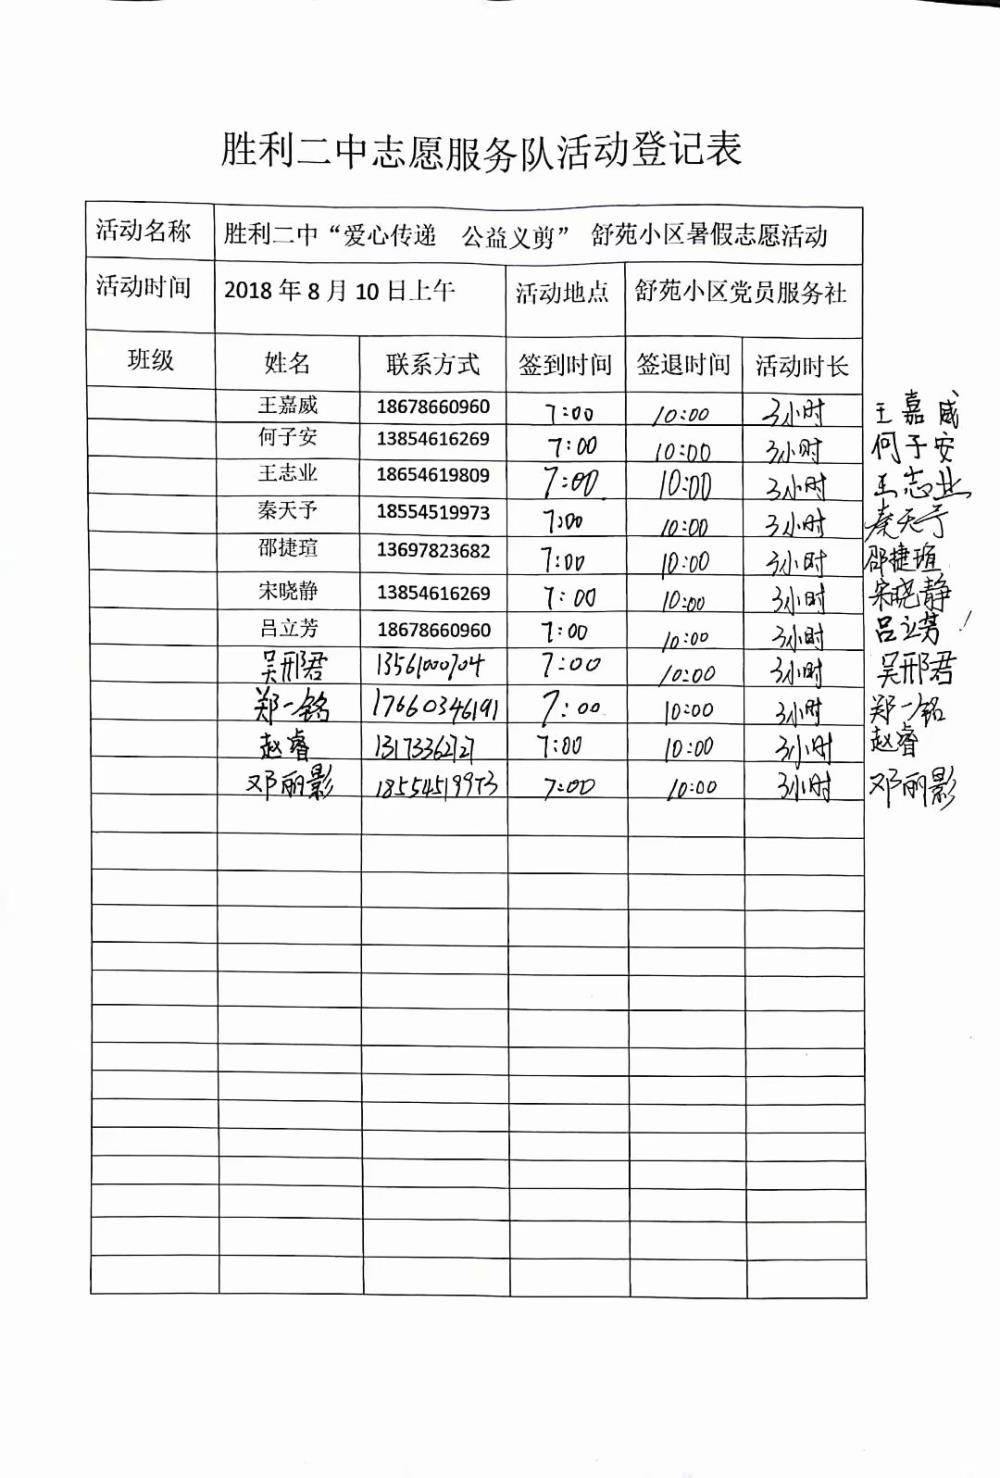 胜利二中志愿服务队活动登记表
活动名称 胜利二中“爱心传递 公益义剪”舒苑小区暑假志愿活动
活动时间 2018 年 8 月 10 日上午 活动地点 舒苑小区党员服务社
班级 姓名 联系方式 签到时间 签退时间 活动时长
王嘉威 18678660960 7:00 10:00 3小时 王嘉威
何子安 13854616269 7:00 10:00 3小时 何子安
王志业 18654619809 7:00 10:00 3小时 王志业
秦天予 18554519973 7:00 10:00 3小时 秦天予
邵捷瑄 13697823682 7:00 10:00 3小时 邵捷瑄
宋晓静 13854616269 7:00 10:00 3小时 宋晓静
吕立芳 18678660960 7:00 10:00 3小时 吕立芳
吴邢君 13561000704 7:00 10:00 3小时 吴邢君
郑一铭 17660346191 7:00 10:00 3小时 郑一铭
赵睿 7:00 10:00 3小时 赵睿
邓丽影 18554519973 7:00 10:00 3小时 邓丽影